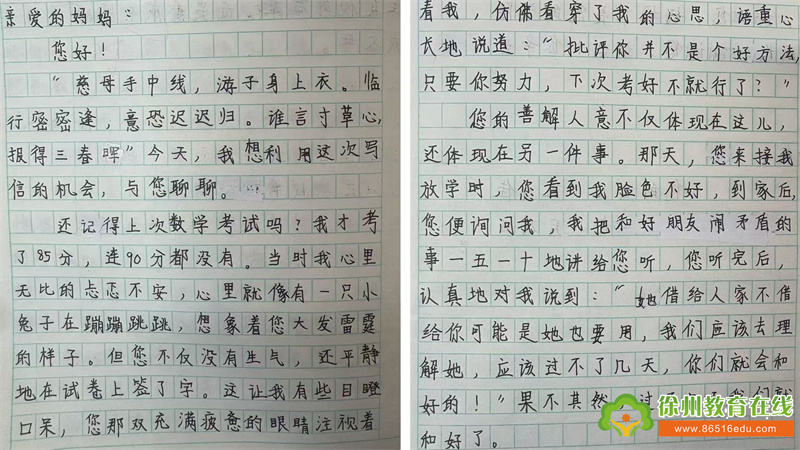 亲爱的妈妈:
您好!
"慈母手中线,游子身上衣。临
行密密逢,意恐迟迟归。谁言寸草心,
报得三春晖"今天,我想利用这次写
信的机会,与您聊聊。
还记得上次数学考试吗?我才考
了85分,连90分都没有。当时我心里
无比的忐忑不安,心里就像有一只小
兔子在蹦蹦跳跳,想象着您大发雷霆
的样子。但您不仅没有生气,还平静
地在试卷上签了字。这让我有些目瞪
口呆,您那双充满疲惫的眼睛注视着
着我,仿佛看穿了我的心思,语重心
长地说道:"批评你并不是个好方法,
只要你努力,下次考好不就行了?"
您的善解人意不仅体现在这儿,
还体现在另一件事。那天,您来接我
放学时,您看到我脸色不好,到家后,
您便询问我,我把和好朋友闹矛盾的
事一五一十地讲给您听,您听完后,
认真地对我说到:"她借给人家不借
给你可能是她也要用,我们应该去理
解她,应该过不了几天,你们就会和
好的!"果不其然,过
我们就
和好了。
徐州教育在线
www.86516edu.com